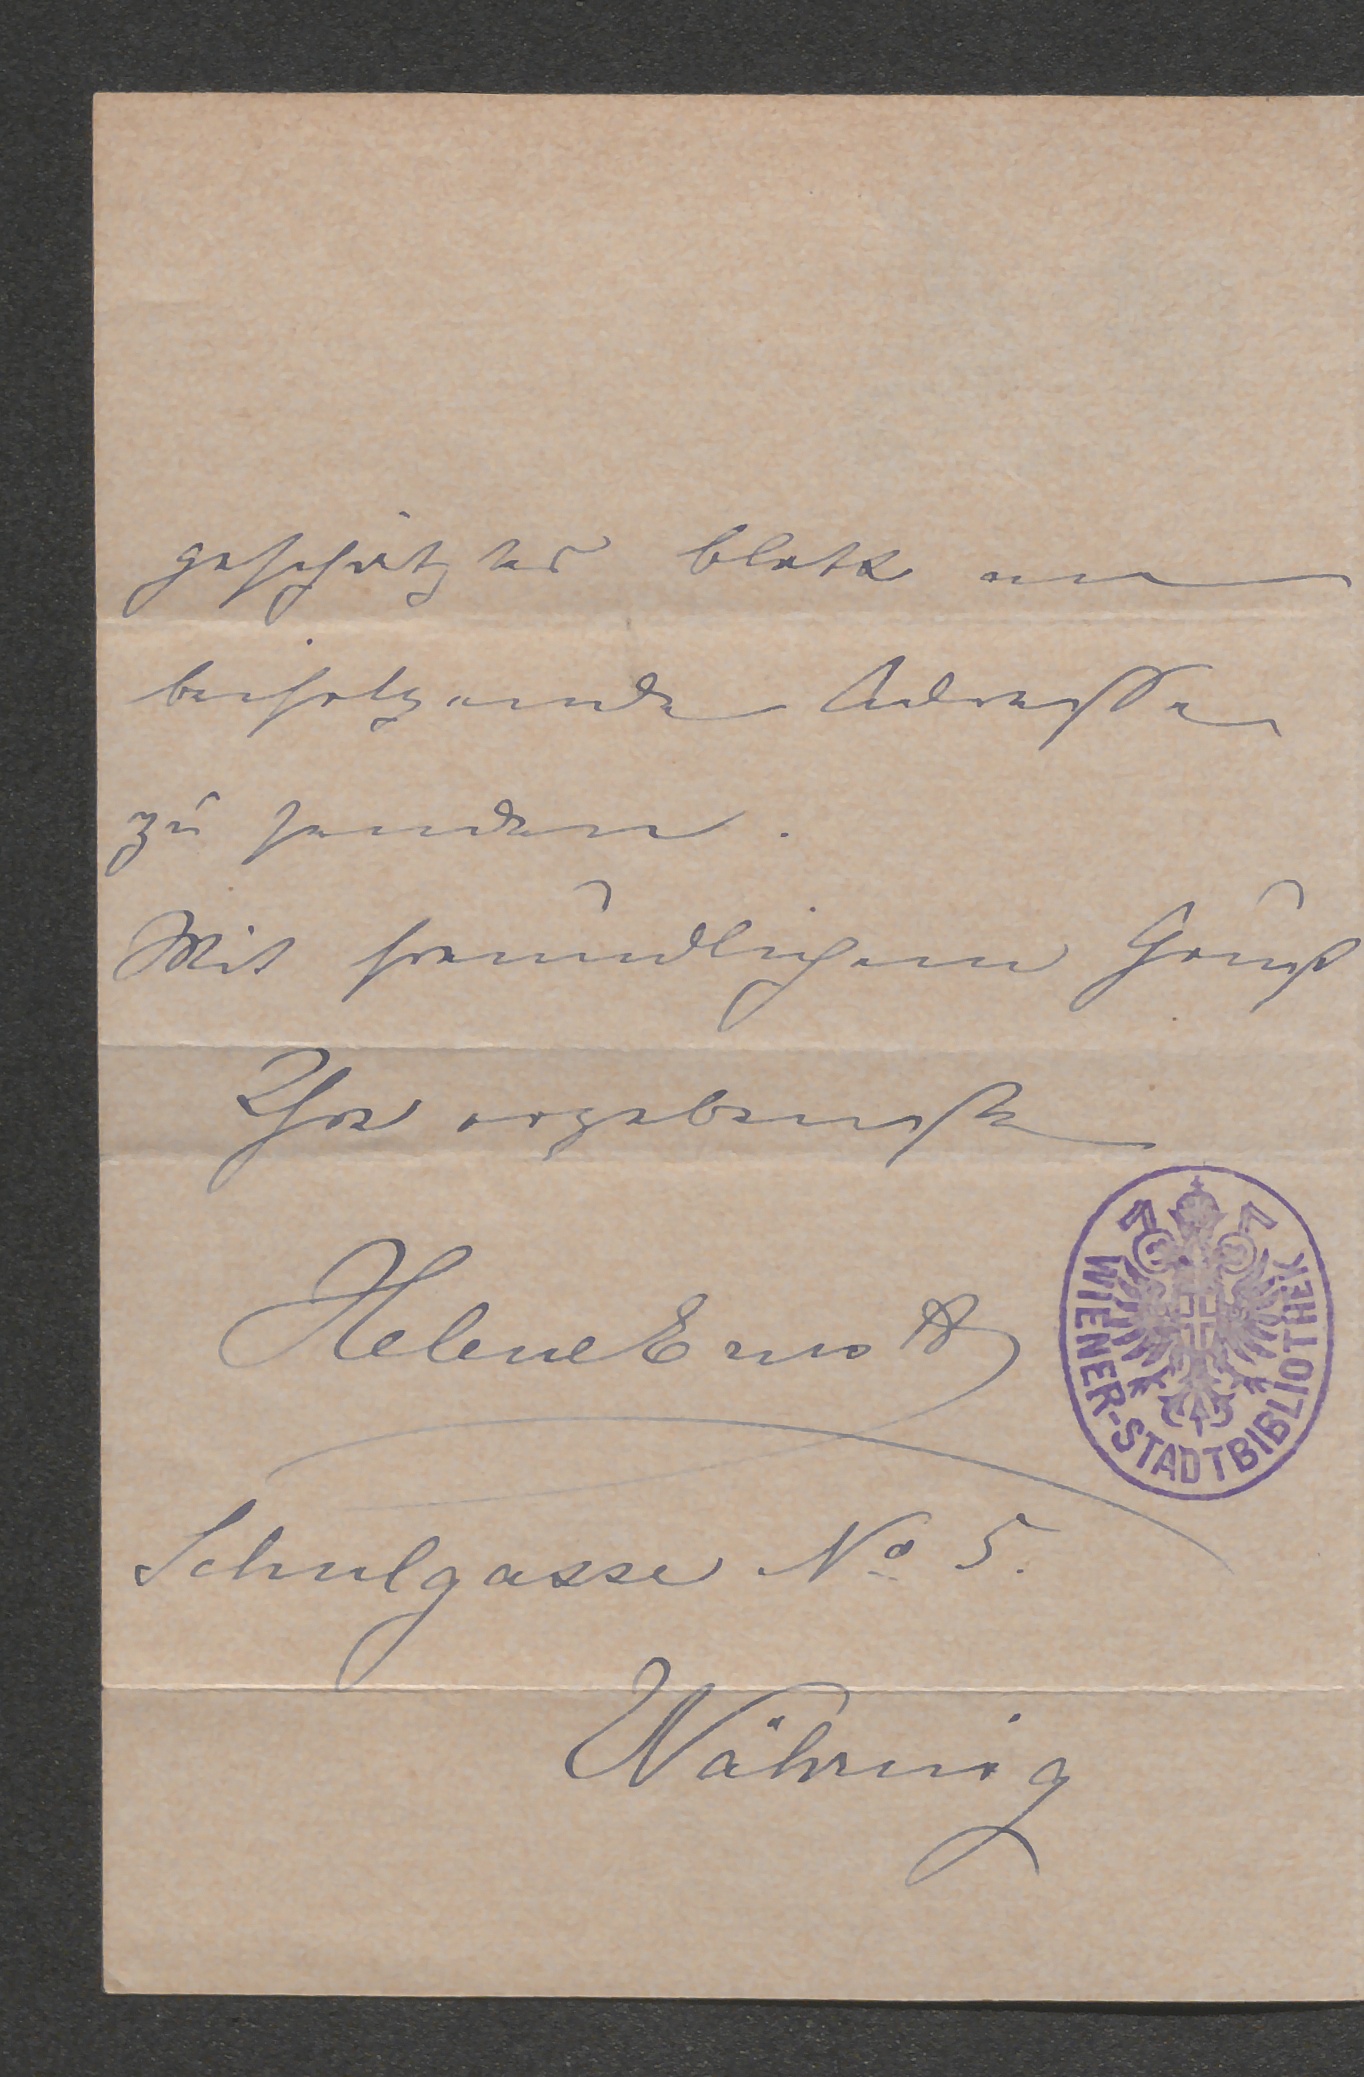 geschätztes Blatt an
beifolgende Adresse
zu senden.
Mit freundlichem Gruß
Ihre ergebenste
Helene Ernst
Schulgasse No 5.
Währing
WIENER-STADTBIBLIOTHEK